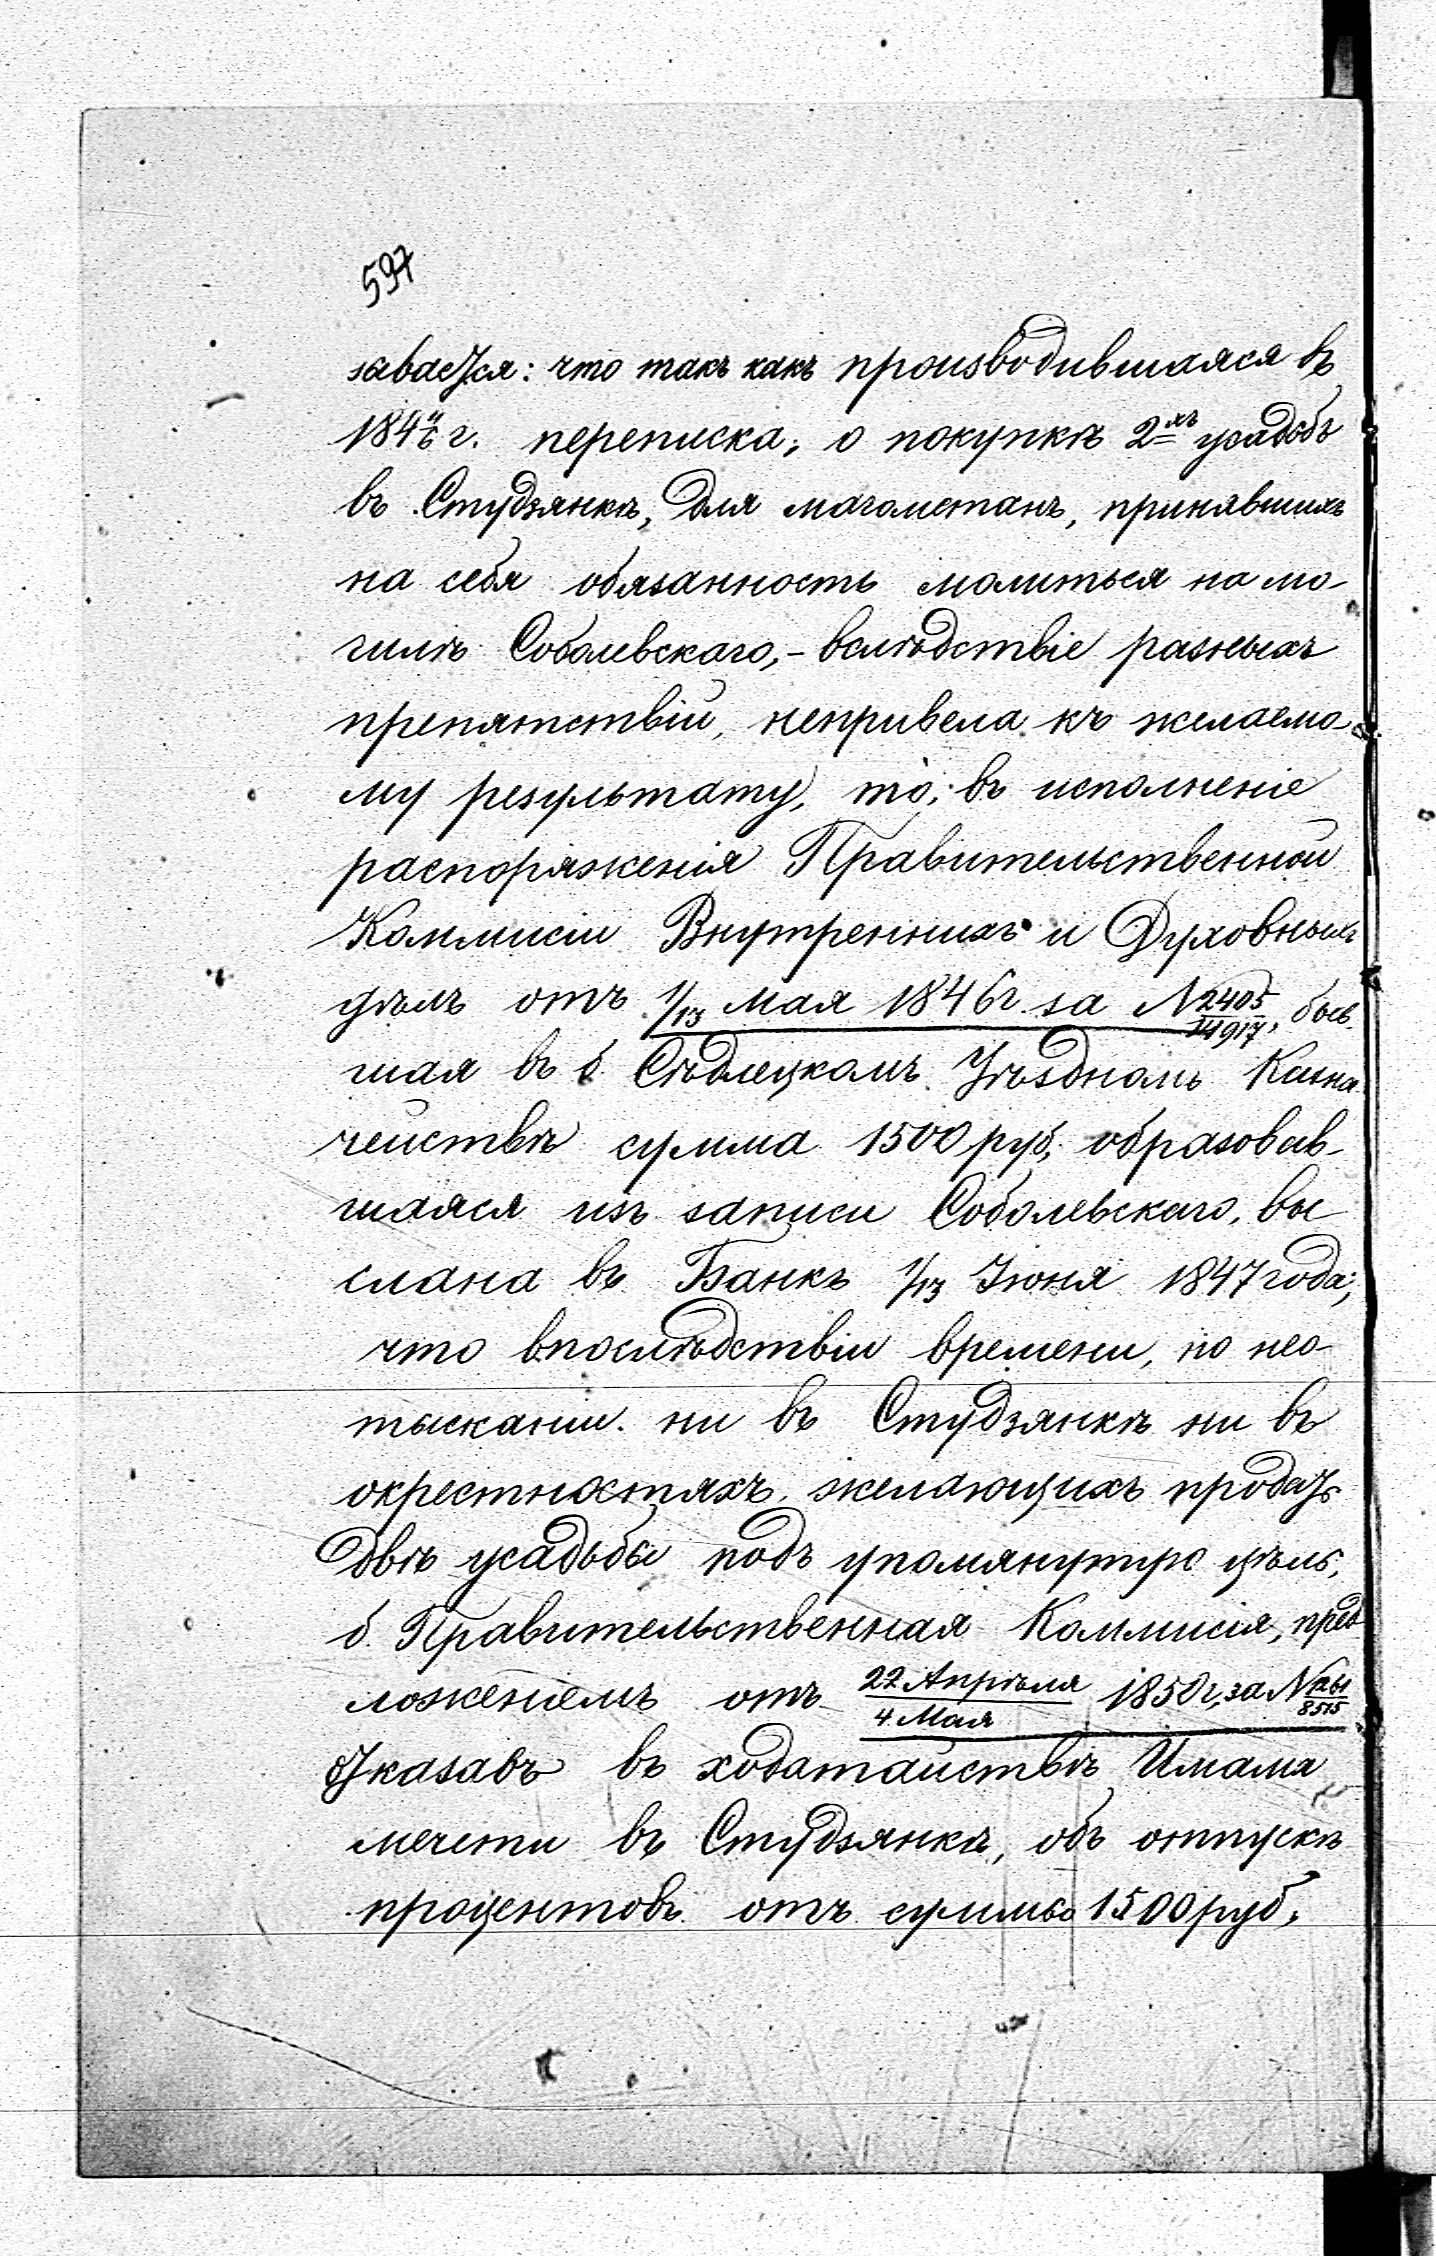 597
зывается: что такъ какъ производившаяся въ
184 г. переписка, о покупкѣ 2хъ усадьбъ
въ Студзянкѣ, для магометанъ, принявшихъ
на себя обязанность молиться на мо-
гилѣ Соболевскаго,- вслѣдствіе разныхъ
препятствій, непривела къ желаемо-
му результату, то, въ исполненіе
распоряженія Правительственной
Коммисіи Внутреннихъ и Духовныхъ
дѣлъ отъ 1/13 Мая 1846 г. за N 2405/14917, быв-
шая въ б. Сѣдлецкомъ Уѣздномъ Казна-
чействѣ сумма 1500 руб, образовав-
шаяся изъ записи Соболевскаго, вы-
слана въ Банкъ 1/13 Іюня 1847 года;
что впослѣдствіи времени, по нео-
тысканіи ни въ Студзянкѣ ни въ
окрестностяхъ, желающихъ продать
двѣ усадьбы подъ упомянутую цѣль,
б. Правительственная Коммисія, пред-
ложеніемъ отъ 22 Апрѣля/4 Мая 1850 г, за N
Указавъ въ ходатайствѣ Имама
мечети въ Студзянкѣ, объ отпускѣ
процентовъ отъ суммы 1500 руб,